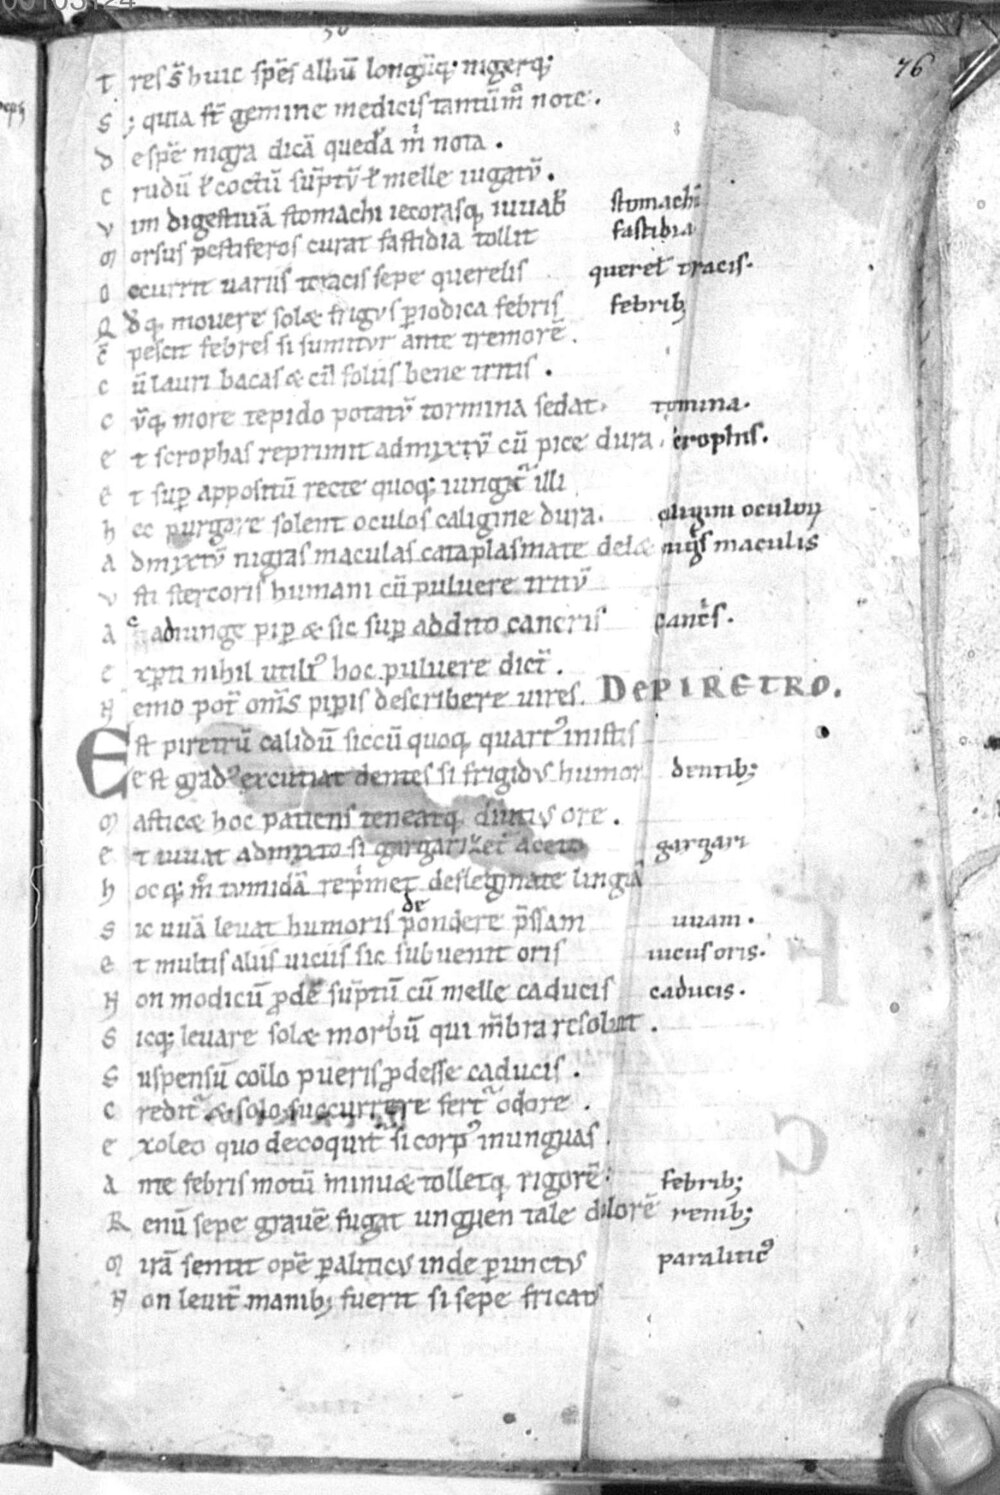 76
T res s̄ huic spēs albū longūq; nigerq;
S ; quia st̄ gemine medicis tantūm̊ note.
D e spē nigra dicā quedā m̄ nota.
C rudū ł coctū sūptū ł melle iugatū. 
V im digestiuā stomachi iecorisq; iuuab̄ stomachi
M orsus pestiferos curat fastidia tollit fastidia
O ccurrit uariis toracis sepe querelis querel toracis.
Q dq; mouere solæ frigus piodica febris febrib;
C ōpescit febres si sumitur ante tremorē.
C ū lauri bacas & cū foliis bene tritis.
C ūq; more tepido potatū tormina sedat. tormina.
E t scrophas reprimit admixtū cū pice dura. scrophis.
E t sup appositū recte quoq; iungit illi
H ec purgare solent oculos caligine dura. caligini oculoꝝ
A dmixtū nigras maculas cataplasmate delæ nigs maculis
V sti stercoris humani cū puluere tritū
A c adiunge pip & sic sup addito cancris cancs.
E xpti nihil utili' hoc puluere dict̄.
N emo pot̄ om̄s pipis describere uires. DE PIRETRO.
E st piretrū calidū siccū quoq; quart' inistis
E e st grad' excutiat dentes si frigidus humor dentib;
M asticæ hoc patiens teneatq; diutius ore.
E t iuuat admixto si gargarizet aceto gargari
H oc q; m̊ tumidā rep̄met defleginate linguā
S ic uuā leuat humoris de pondere p̄ssam uuam.
E t multis aliis uiciis sic subuenit oris uicus oris.
N on modicū pdē sūptū cū melle caducis caducis.
S icq; leuare solæ morbū qui m̄bra resoluit.
S uspensū collo pueris pdesse caducis.
C redit̄ & solo succurrere fert̄ odore.
E x oleo quo decoquit̄ si corp' inunguas.
A nte febris motū minuæ tolletq; rigorē. febrib;
R enū sepe grauē fugat unguen tale dolorē renib;
M irā sentit opē paliticus inde punctus paralitic'
N on leuit̄ manib; fuerit si sepe fricatus